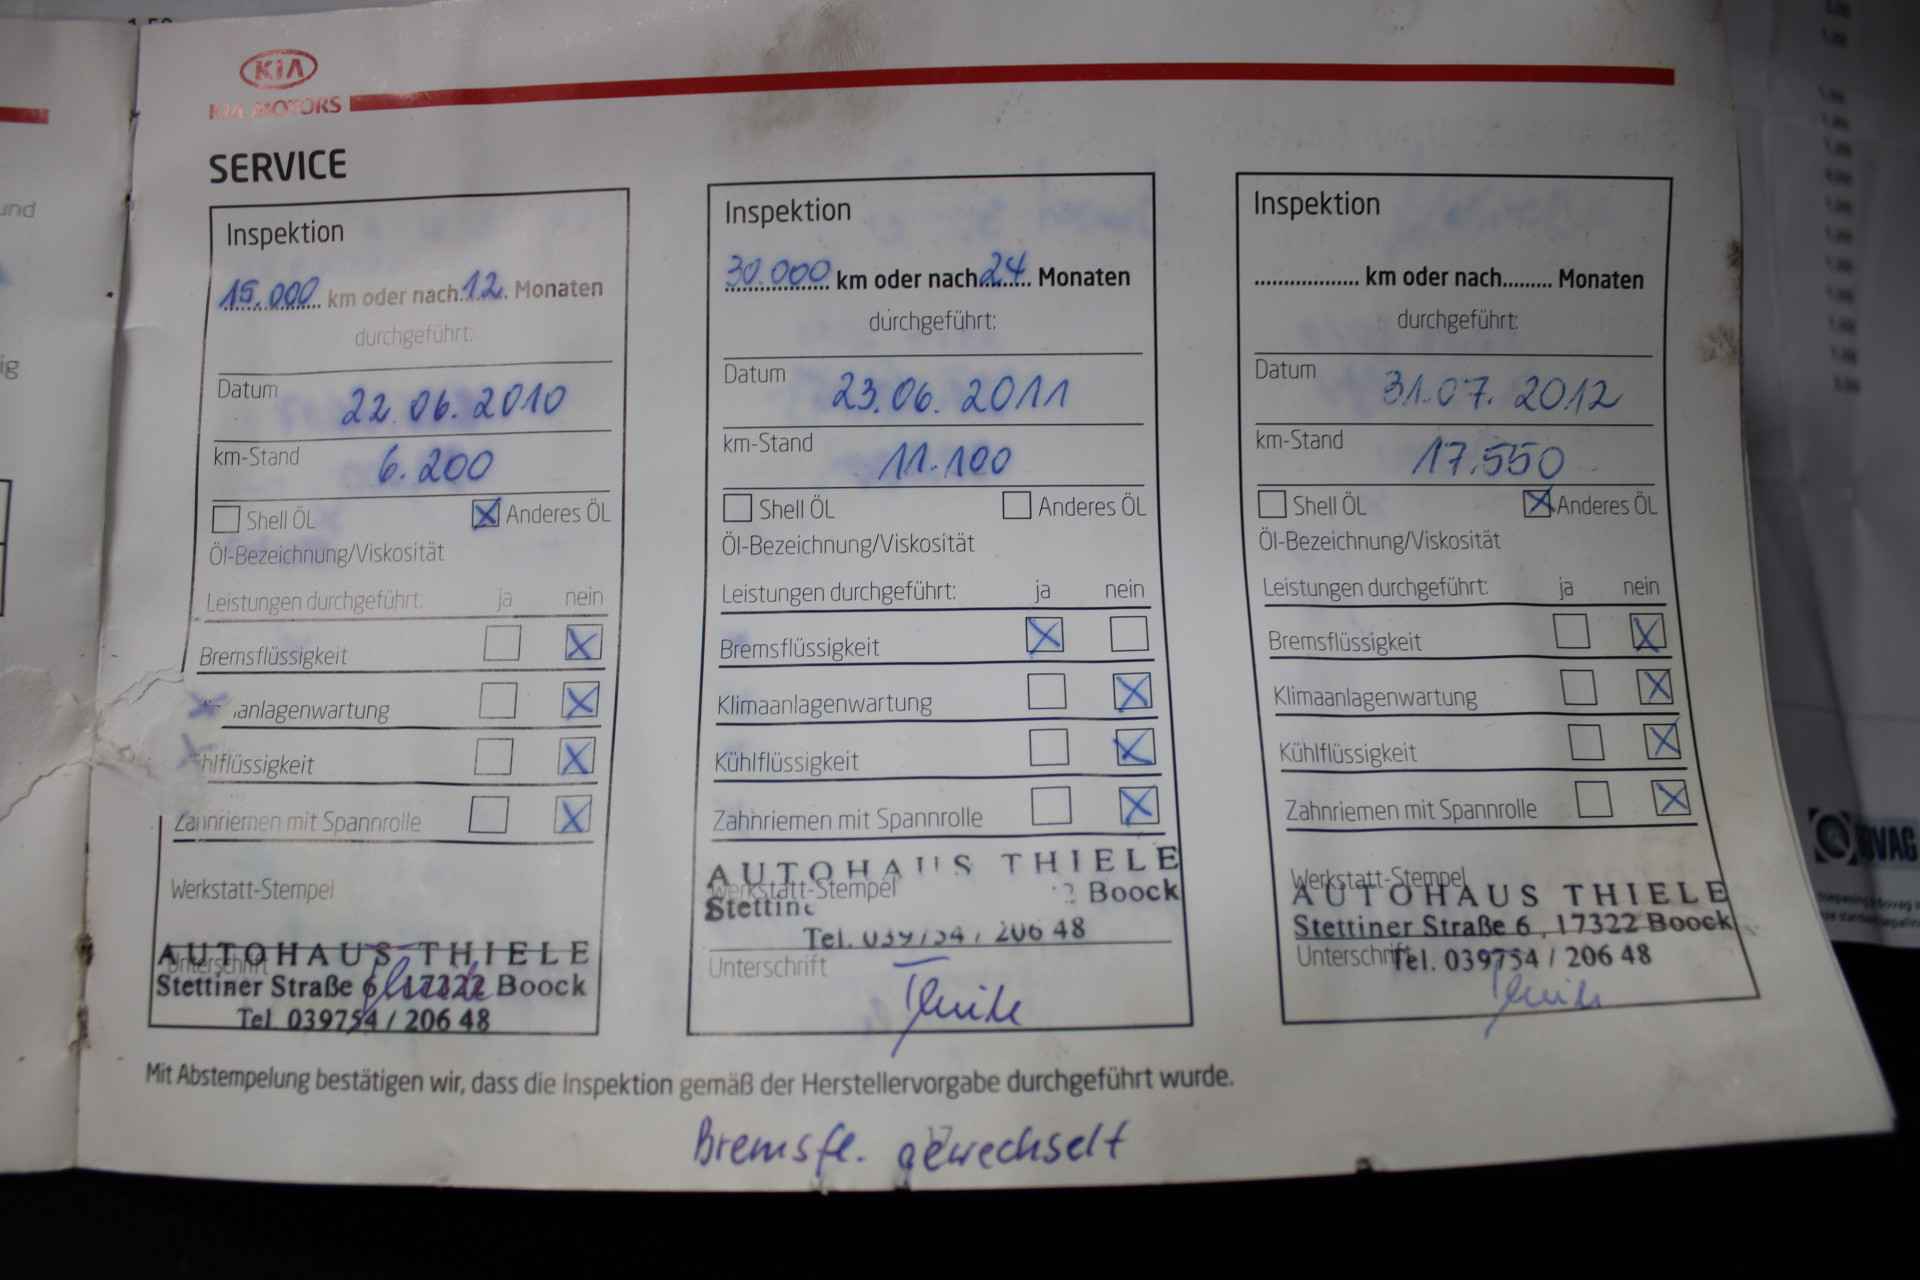 KIA
KIA MOTORS
SERVICE
Inspektion
15.000 km oder nach 12. Monaten
durchgeführt:
Datum 22.06.2010
km-Stand 6.200
Shell ÖL Anderes ÖL
Öl-Bezeichnung/Viskosität
Leistungen durchgeführt: ja nein
Bremsflüssigkeit
anlagenwartung
hlflüssigkeit
Zahnriemen mit Spannrolle
Werkstatt-Stempel
AUTOHAUS THIELE
Unterschrift
Stettiner Straße 6, 17322 Boock
Tel. 039754 / 206 48
Inspektion
30.000 km oder nach 24 Monaten
durchgeführt:
Datum 23.06.2011
km-Stand 11.100
Shell ÖL Anderes ÖL
Öl-Bezeichnung/Viskosität
Leistungen durchgeführt: ja nein
Bremsflüssigkeit
Klimaanlagenwartung
Kühlflüssigkeit
Zahnriemen mit Spannrolle
AUTOHAUS THIELE
Werkstatt-Stempel
Stettine 2 Boock
Tel. 039754 / 206 48
Unterschrift
Inspektion
.................. km oder nach......... Monaten
durchgeführt:
Datum 31.07.2012
km-Stand 17.550
Shell ÖL Anderes ÖL
Öl-Bezeichnung/Viskosität
Leistungen durchgeführt: ja nein
Bremsflüssigkeit
Klimaanlagenwartung
Kühlflüssigkeit
Zahnriemen mit Spannrolle
Werkstatt-Stempel
AUTOHAUS THIELE
Stettiner Straße 6, 17322 Boock
Unterschrift
Tel. 039754 / 206 48
Mit Abstempelung bestätigen wir, dass die Inspektion gemäß der Herstellervorgabe durchgeführt wurde.
Bremsfl. gewechselt
und
ig
OVAG